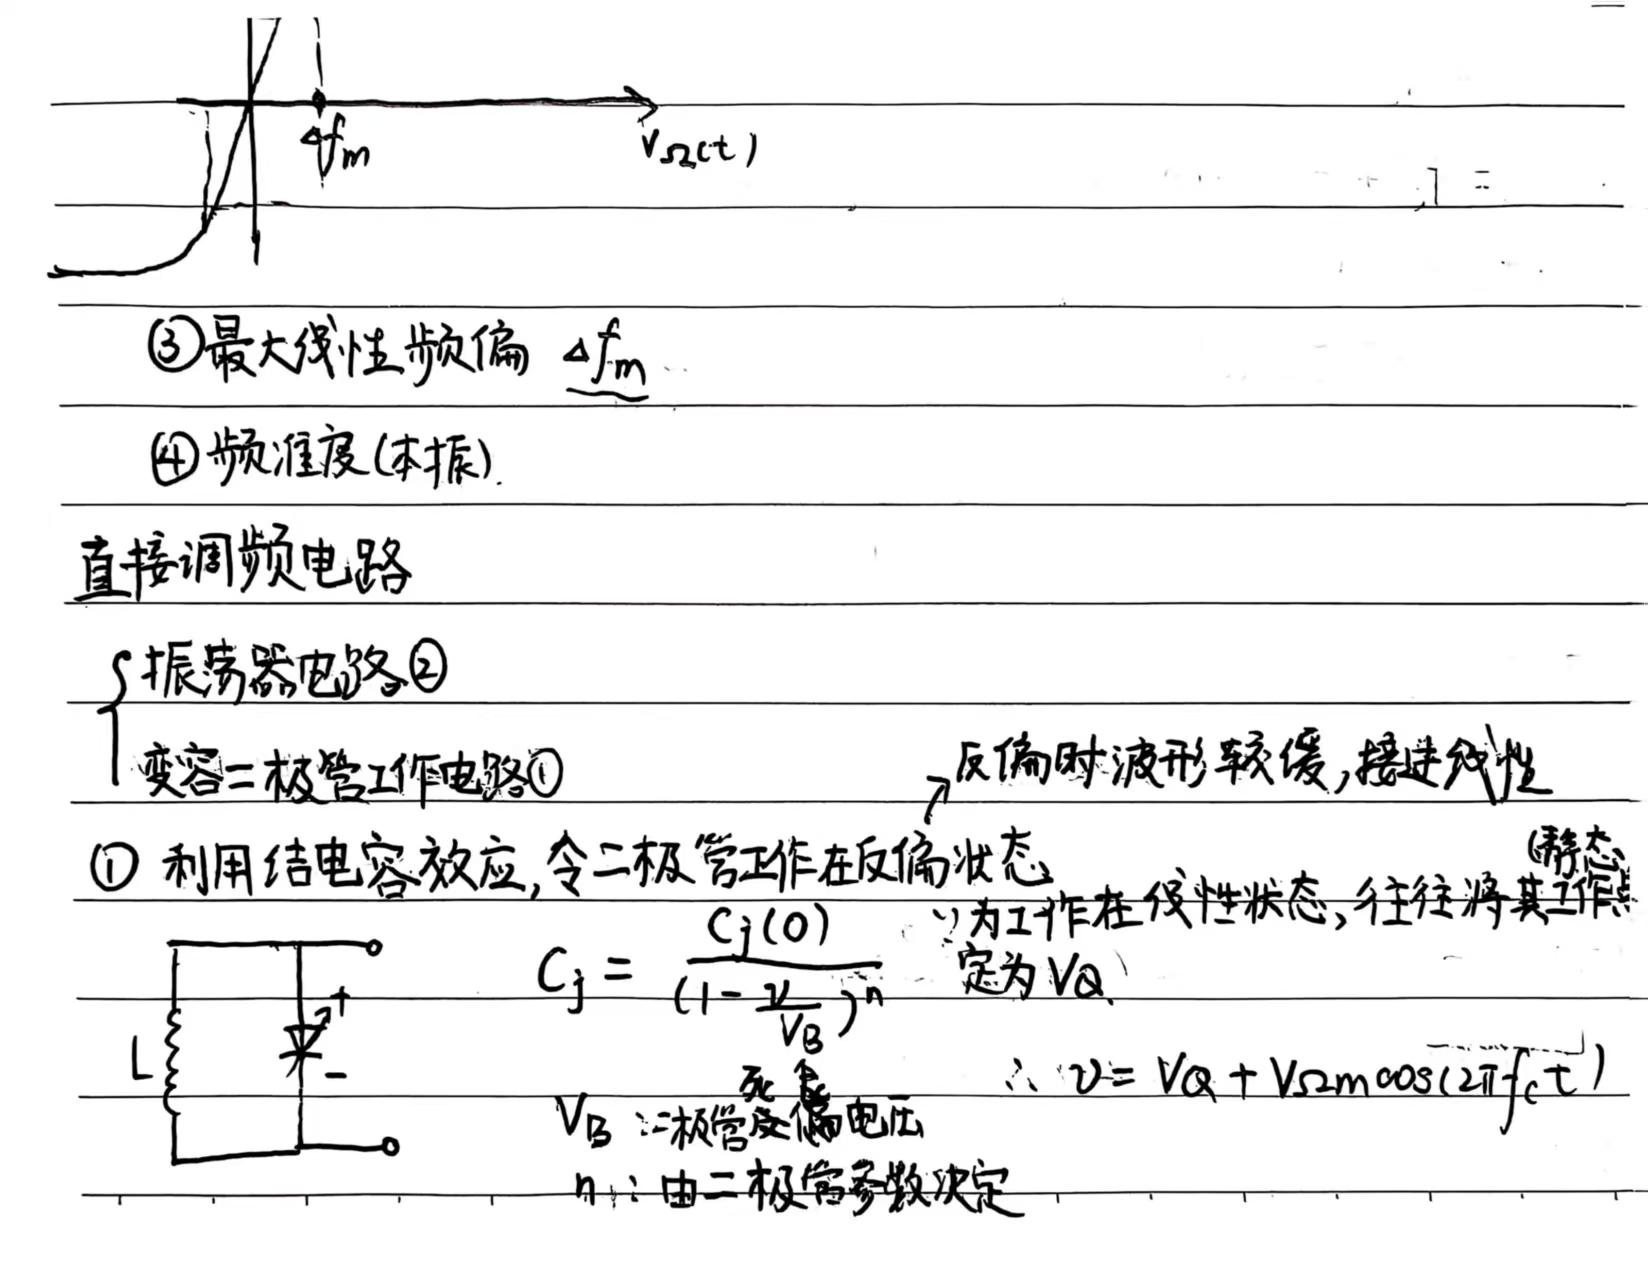 Δfm
VΩ(t)
③最大线性频偏 Δfm
④频准度(本振).
直接调频电路
振荡器电路②
变容二极管工作电路①
反偏时波形较缓,接近线性
① 利用结电容效应,令二极管工作在反偏状态
(静态)
∵为工作在线性状态,往往将其工作点
定为VQ
Cj = Cj(0) / (1 - v/VB)^n
L
+
-
∴ v = VQ + VΩm cos(2πfct)
VB:二极管偏电压
n:由二极管参数决定